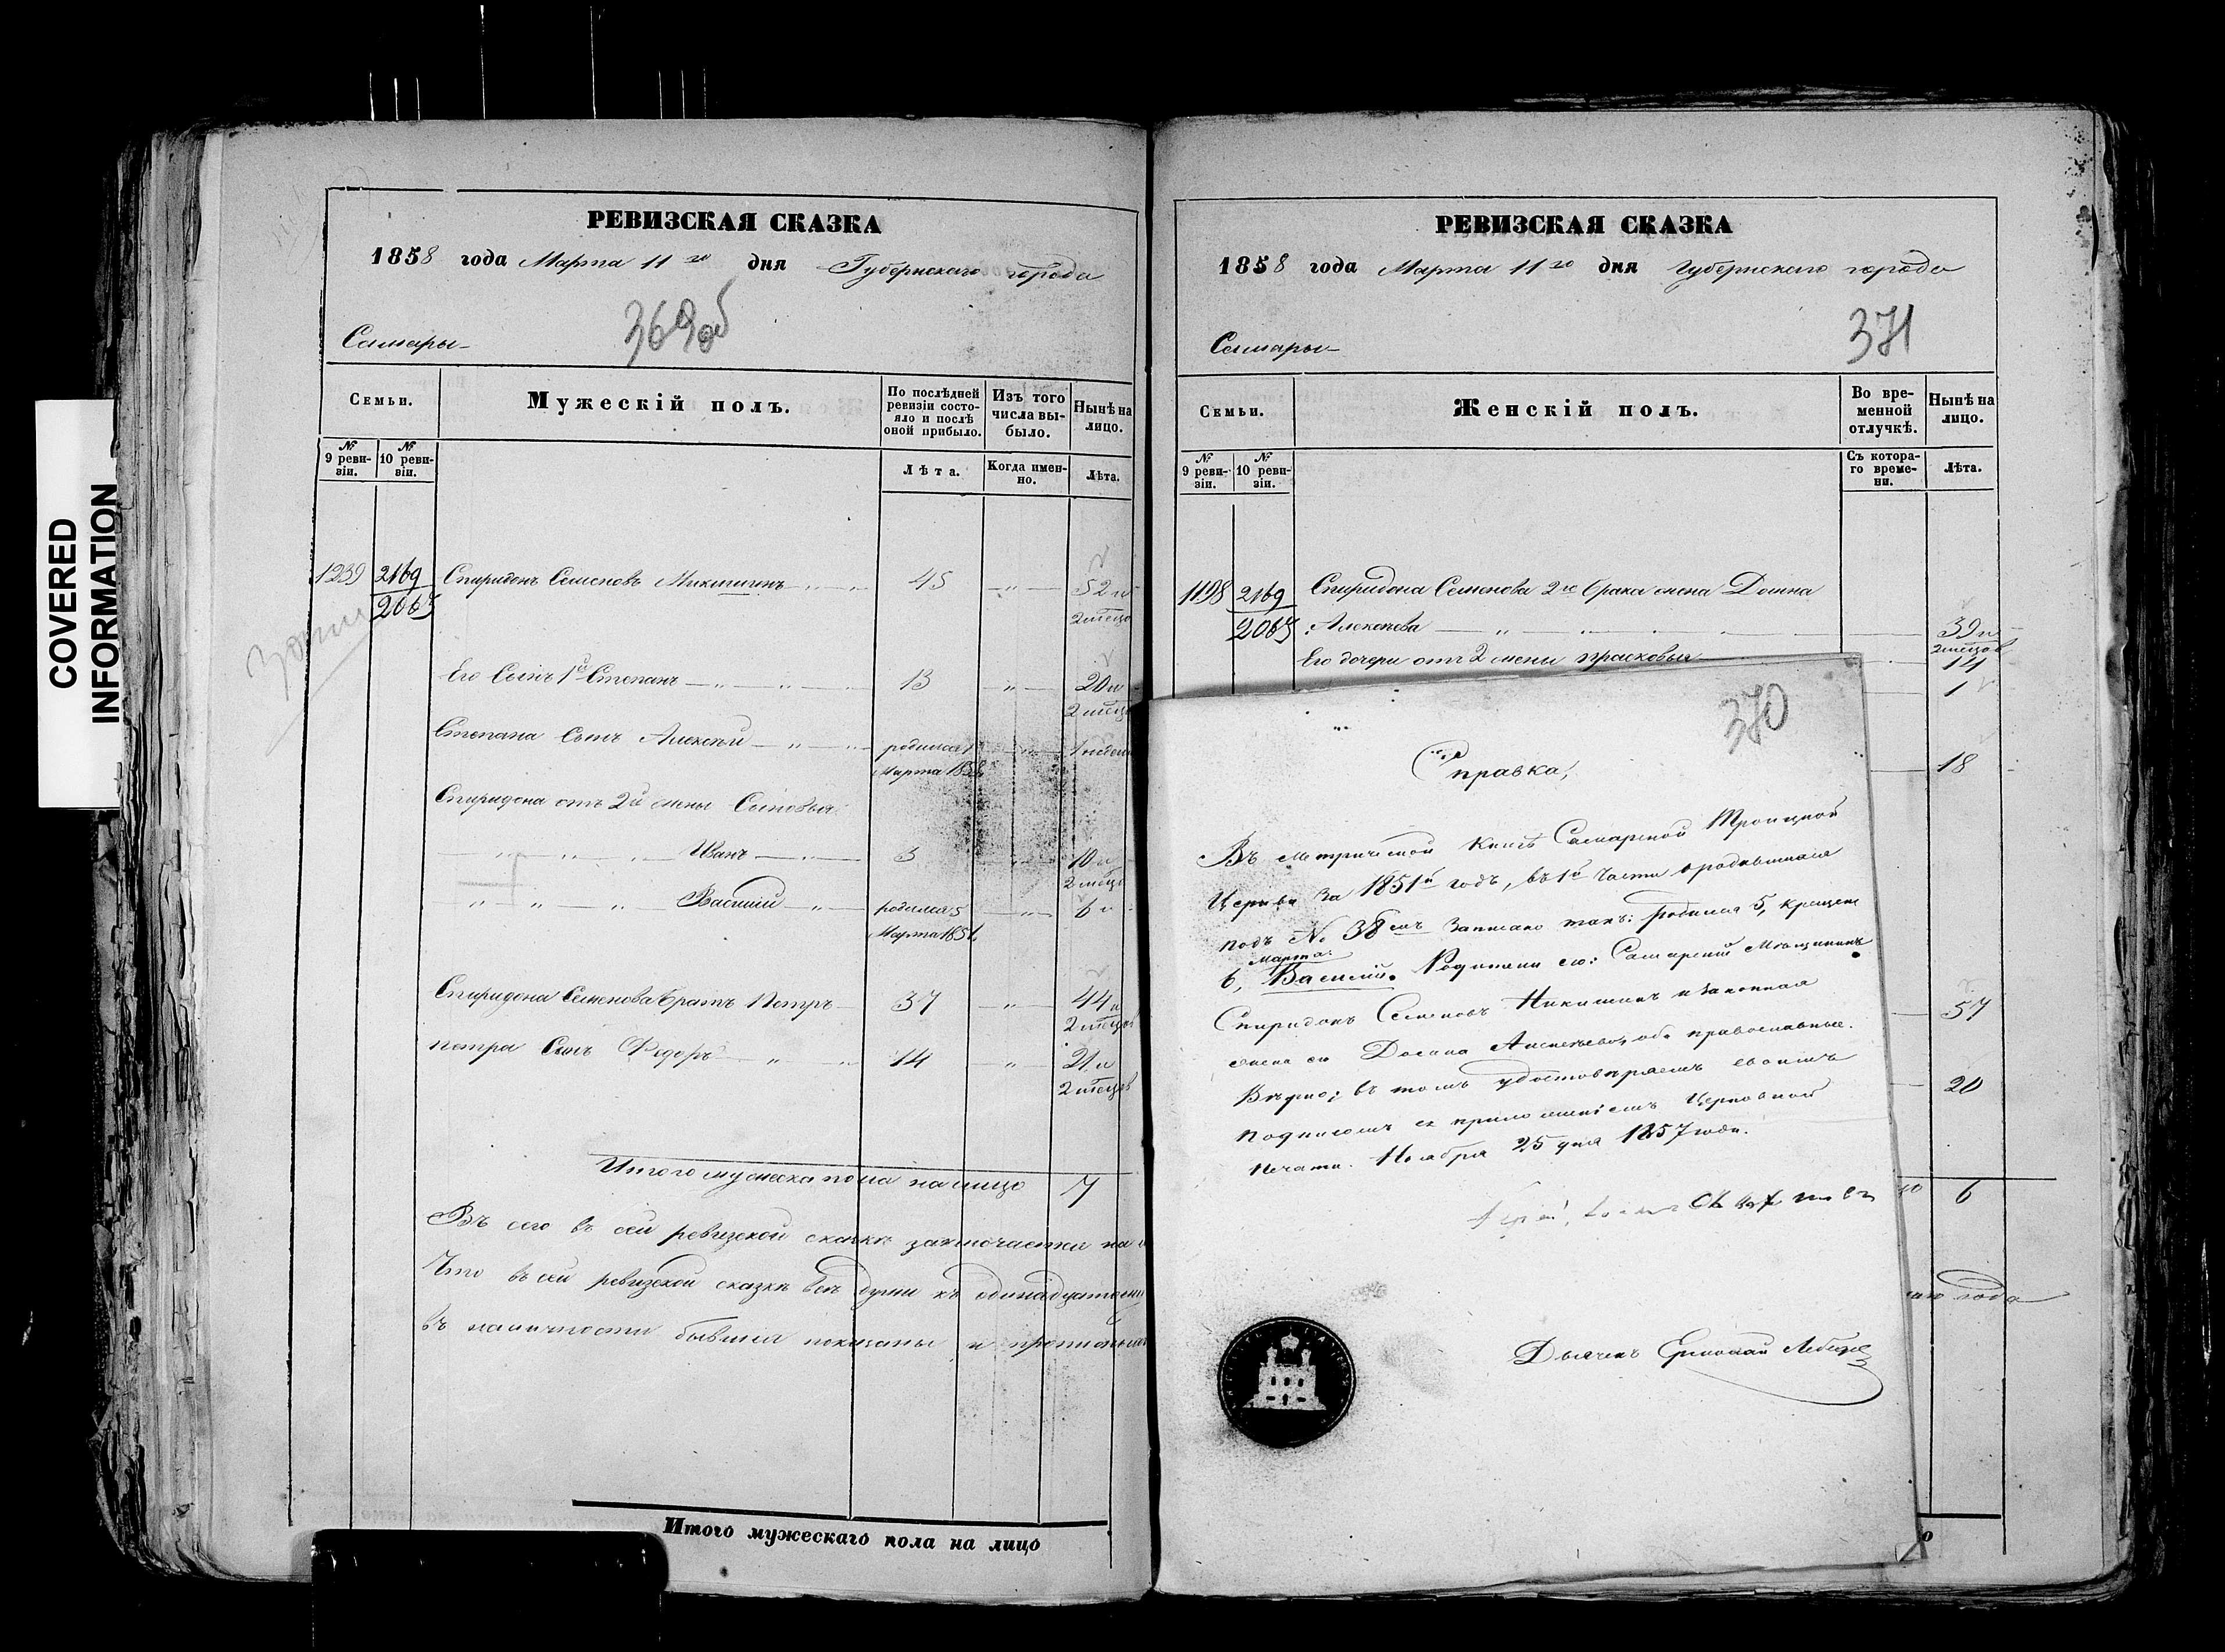 COVERED
INFORMATION
РЕВИЗСКАЯ СКАЗКА
1858 года Марта 11го дня Губернскаго города
369об
Самары
Семьи.
Мужескій полъ.
По послѣдней ревизіи состояло и послѣ оной прибыло.
Изъ того числа выбыло.
Нынѣ на лицо.
№ 9 ревизіи.
№ 10 ревизіи.
Лѣта.
Когда именно.
Лѣта.
1239 2169 Спиридонъ Семеновъ Никишинъ 45 52 и
2065 2 месец
Его Сынъ 1й Степанъ 13 20 и
2 месец
Степана Сынъ Алексѣй родился 1
Марта 1858
Спиридона отъ 2й жены Сыновья:
Иванъ 3 10 и
2 месец
Василій родился 5 6 и
Марта 1851
Спиридона Семенова братъ Петръ 37 44 и
2 месецов
Петра Сынъ Федоръ 14 21 и
2 месецов
Итого мужеска пола на лицо 7
Въ сей ревизской сказкѣ заключается на
Что въ сей ревизской сказкѣ всѣ души къ одинадцатому
въ наличности бывшія показаны и
Итого мужескаго пола на лицо
РЕВИЗСКАЯ СКАЗКА
1858 года Марта 11го дня Губернскаго города
371
Самары
Семьи.
Женскій полъ.
Во временной отлучкѣ.
Нынѣ на лицо.
№ 9 ревизіи.
№ 10 ревизіи.
Съ котораго времени.
Лѣта.
1198 2169 Спиридона Семенова 2го брака жена Домна
2065 Алексѣева 39 и
2 месецов
Его дочери отъ 2 жены Прасковья 14
1
18
57
20
6
года
370
Справка,
Въ метрической книгѣ Самарской Троицкой
Церкви за 1851й годъ, въ 1й части о родившихся
подъ № 38мъ записано такъ: родился 5, крещенъ
Марта
6, Василій. Родители его: Самарскій Мѣщанинъ
Спиридонъ Семеновъ Никишинъ и законная
жена его Домна Алексѣева, оба православные.
Вѣрно; въ томъ удостовѣряемъ своимъ
подписомъ съ приложеніемъ Церковной
печати. Ноября 25 дня 1857 года.
Дьячекъ